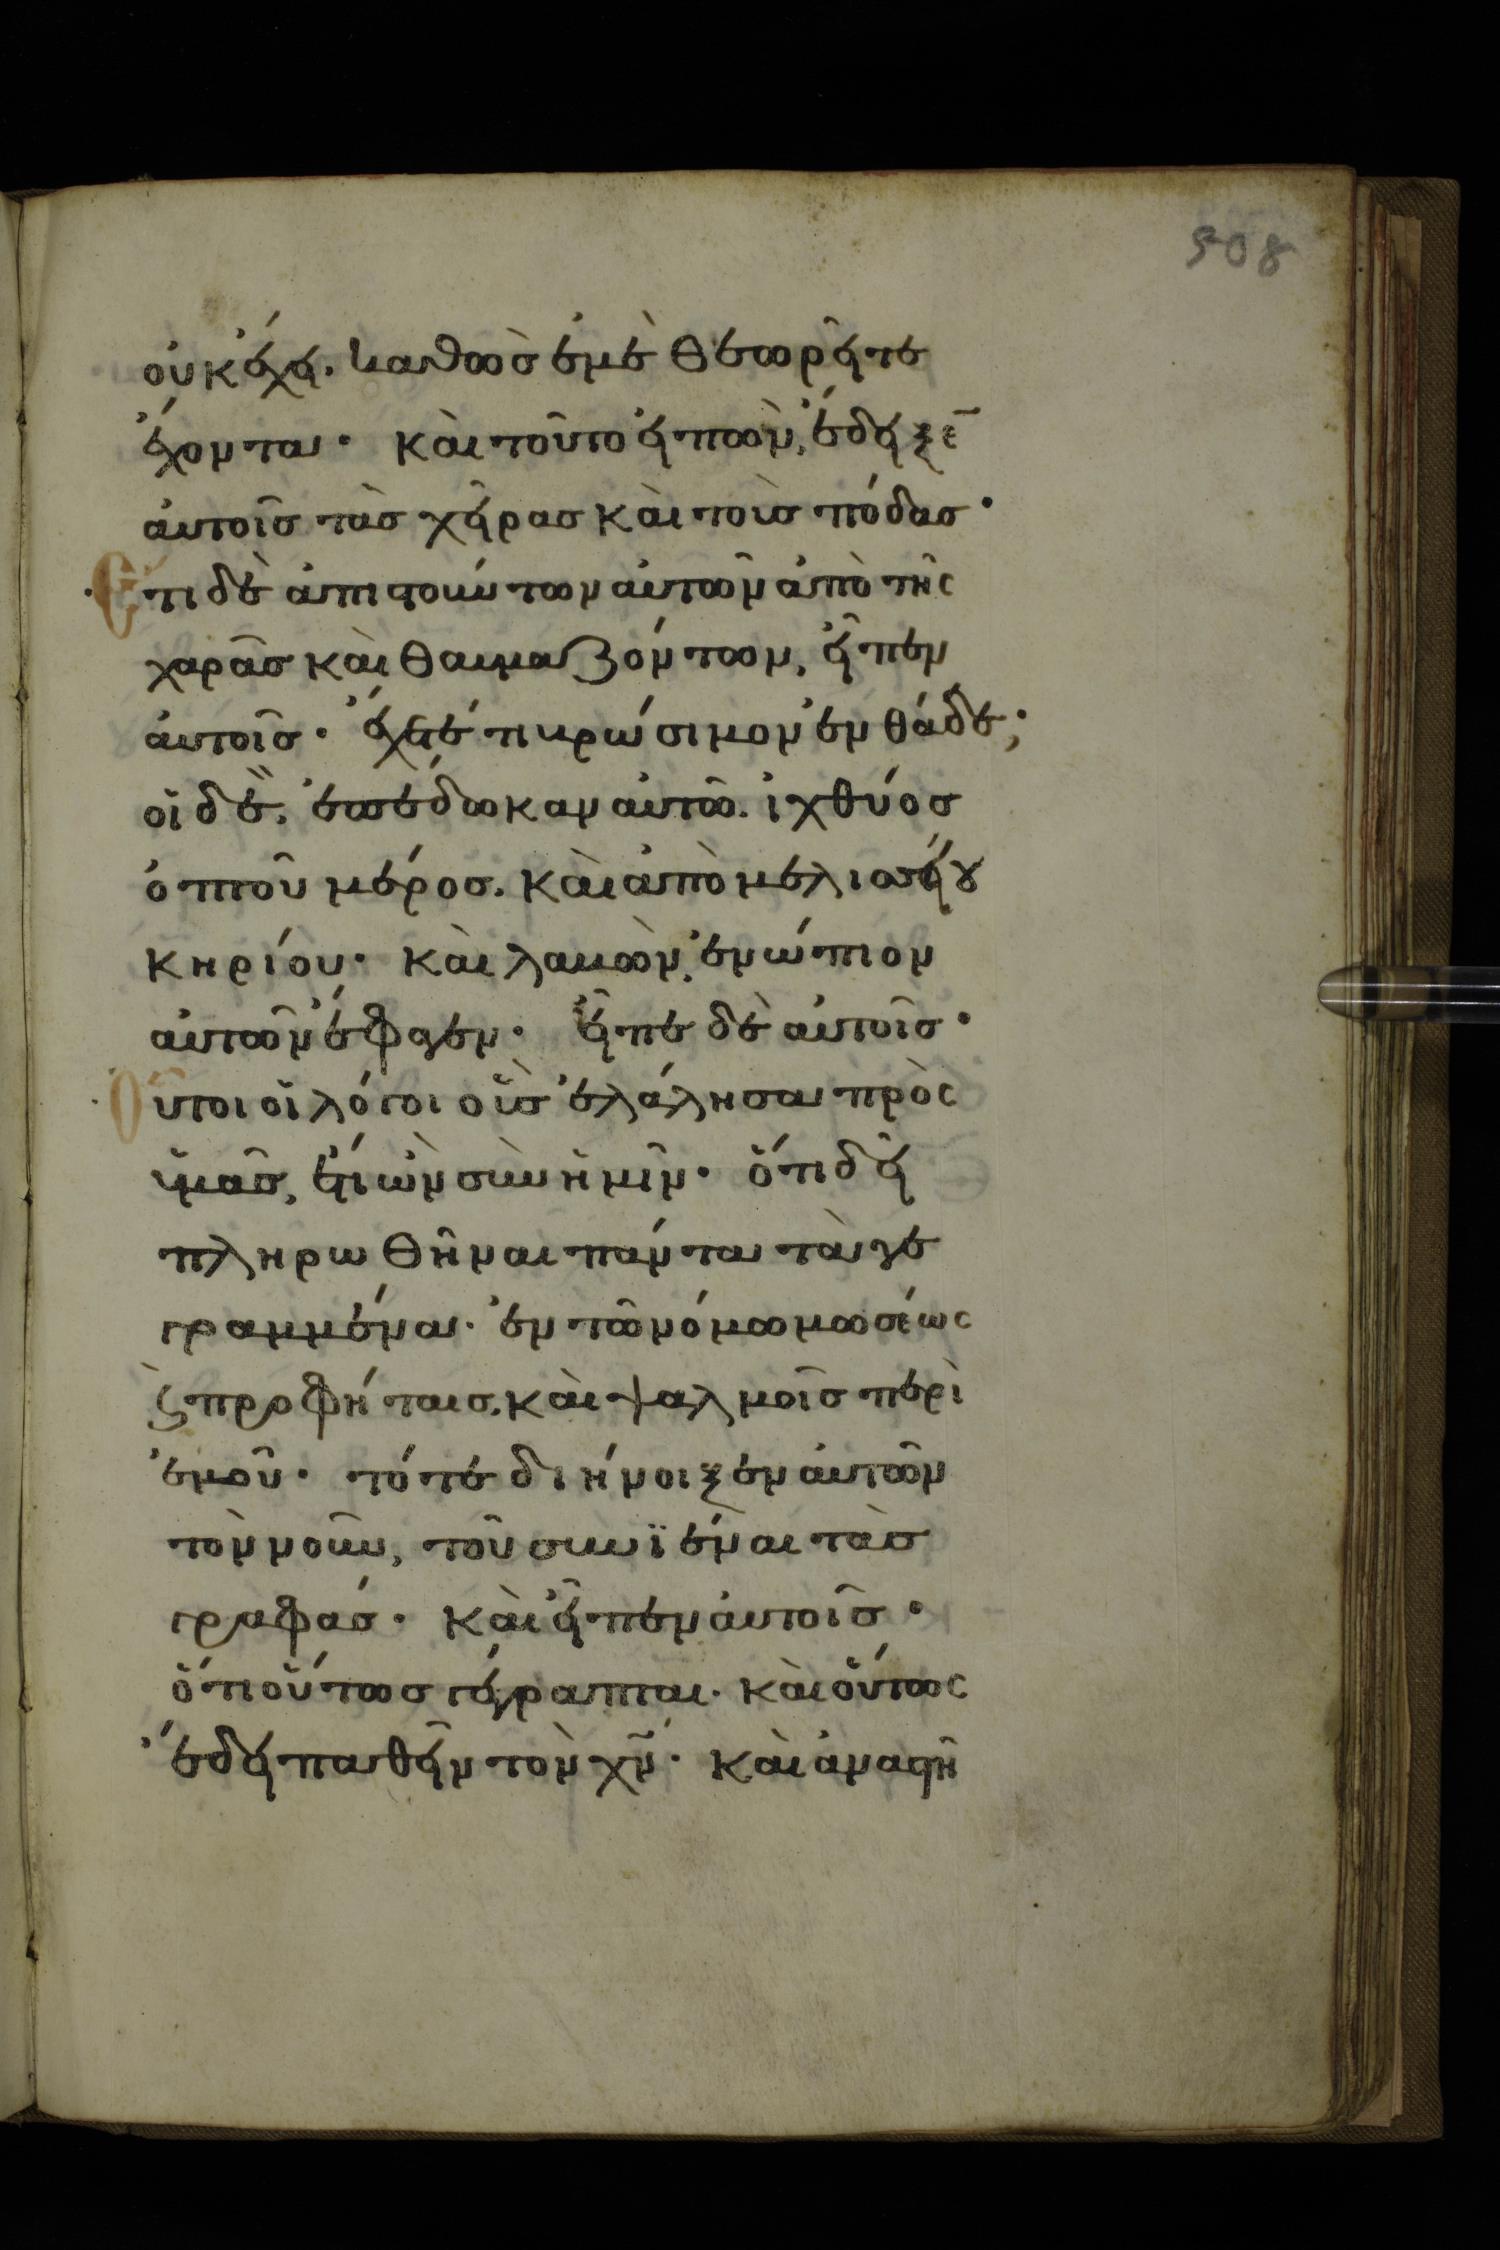 508
οὐκ ἔχει. καθὼς ἐμὲ θεωρεῖτε
ἔχοντα· καὶ τοῦτο εἰπὼν, ἔδειξε̅
αὐτοῖς τὰς χεῖρας καὶ τοὺς πόδας·
Ἔτι δὲ ἀπιστούντων αὐτῶν ἀπὸ τῆς
χαρᾶς καὶ θαυμαζόντων, εἶπεν
αὐτοῖς· ἔχετέ τι βρώσιμον ἐνθάδε;
οἱ δὲ, ἐπέδωκαν αὐτῶ. ἰχθύος
ὀπτοῦ μέρος. καὶ ἀπὸ μελισσείου
κηρίου· καὶ λαβὼν, ἐνώπιον
αὐτῶν ἔφαγεν· εἶπε δὲ αὐτοῖς·
Οὗτοι οἱ λόγοι οὓς ἐλάλησα πρὸς
ὑμᾶς, ἔτι ὢν σὺν ἡμῖν· ὅτι δεῖ
πληρωθῆναι πάντα τὰ γε
γραμμένα· ἐν τῶ νόμω μωσέως
ϛ̀ προφήταις, καὶ ψαλμοῖς περὶ
ἐμοῦ· τότε διήνοιξεν αὐτῶν
τὸν νοῦν, τοῦ συνϊέναι τὰς
γραφάς· καὶ εἶπεν αὐτοῖς·
ὅτι οὕτως γέγραπται· καὶ οὕτως
ἔδει παθεῖν τὸν χ̅ν̅· καὶ ἀναστῆ